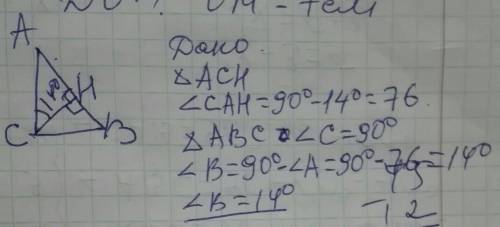 A
H
C
B
Дано.
△ACH
∠CAH=90°-14°=76.
△ABC ∠C=90°
∠B=90°-∠A=90°-76=14°
∠B=14°